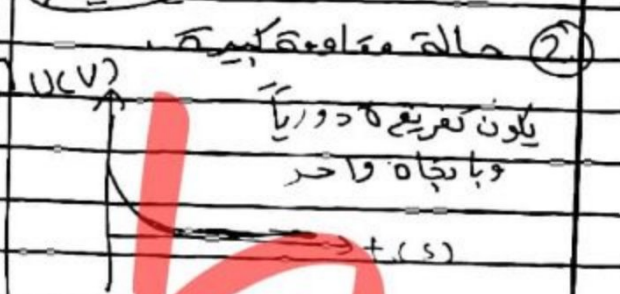 ② حالة مقاومة كبيرة.
U(V)
يكون تفريغه دورياً
وباتجاه واحد
t(s)